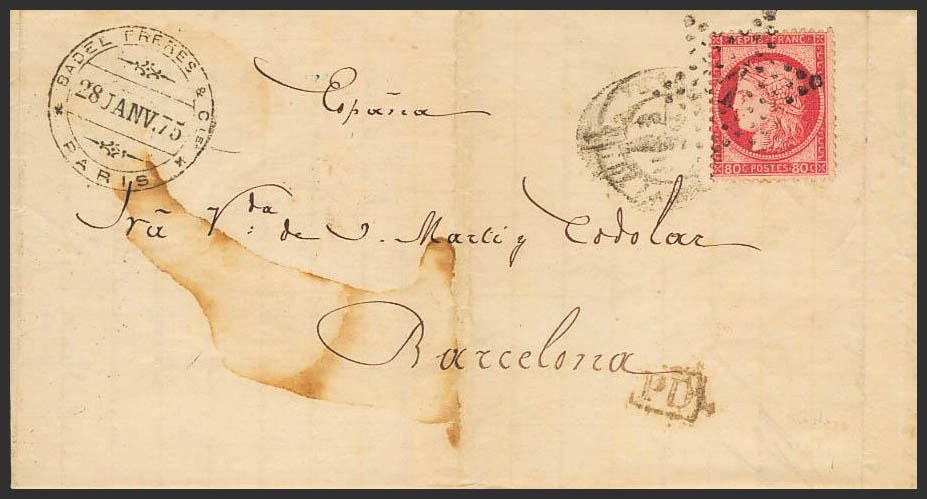 BADEL FRERES & CIE
28 JANV. 75
PARIS
España
REPUB. FRANC.
80 C. POSTES 80 C.
Sra Vda de J. Martí y Codolar
Barcelona
PD